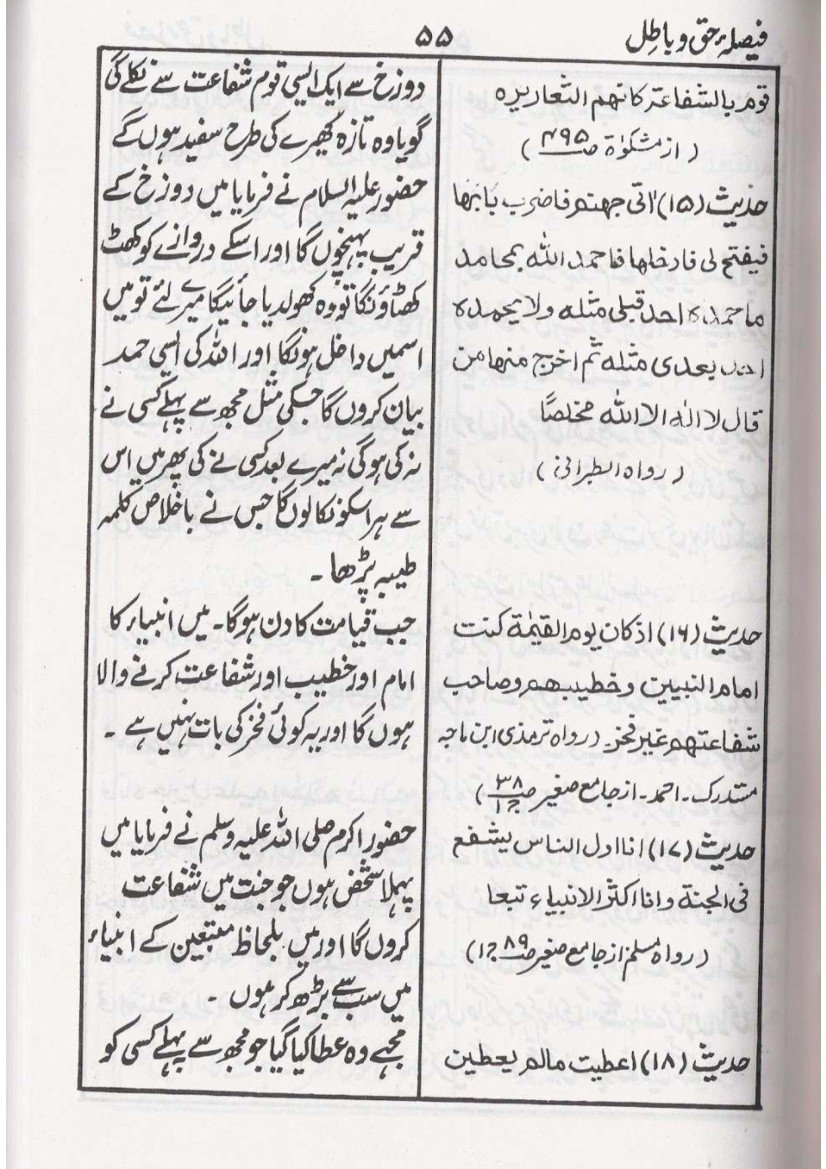 فیصلۂ حق و باطل
۵۵
قوم بالشفاعتہ کانھم الثعاریرہ
(از مشکوٰۃ صـ ۴۹۵)
حدیث (۱۵) اٰتی جھنم فاضرب بابھا
فیفتح لی فادخلھا فاحمد اللہ بمحامد
ماحمدہ احد قبلی مثلہ ولا یحمدہ
احد بعدی مثلہ ثم اخرج منھا من
قال لا الہ الا اللہ مخلصًا
(رواہ الطبرانی)
حدیث (۱۶) اذ کان یوم القیٰمۃ کنت
امام النبیین وخطیبھم وصاحب
شفاعتھم غیر فخر۔ (رواہ ترمذی ابن ماجہ
مستدرک۔ احمد۔ از جامع صغیر صـ ۳۸ جـ۱)
حدیث (۱۷) انا اول الناس یشفع
فی الجنۃ وانا اکثر الانبیاء تبعا
(رواہ مسلم از جامع صغیر صـ ۸۹ جـ۱)
حدیث (۱۸) اعطیت مالم یعطین
دوزخ سے ایک ایسی قوم شفاعت سے نکلے گی
گویا وہ تازہ کھیرے کی طرح سفید ہوں گے
حضور علیہ السلام نے فرمایا میں دوزخ کے
قریب پہنچوں گا اور اسکے دروازے کو کھٹ
کھٹاؤنگا تو وہ کھولدیا جائیگا میرے لئے تو میں
اسمیں داخل ہونگا اور اللہ کی ایسی حمد
بیان کروں گا جسکی مثل مجھ سے پہلے کسی نے
نہ کی ہوگی نہ میرے بعد کسی نے کی پھر میں اس
سے ہر اسکو نکالوں گا جس نے باخلاص کلمہ
طیبہ پڑھا۔
جب قیامت کا دن ہوگا۔ میں انبیاء کا
امام اور خطیب اور شفاعت کرنے والا
ہوں گا اور یہ کوئی فخر کی بات نہیں ہے۔
حضور اکرم صلی اللہ علیہ وسلم نے فرمایا میں
پہلا شخص ہوں جو جنت میں شفاعت
کروں گا اور میں بلحاظ متبعین کے انبیاء
میں سب سے بڑھ کر ہوں۔
مجہے وہ عطا کیا گیا جو مجھ سے پہلے کسی کو